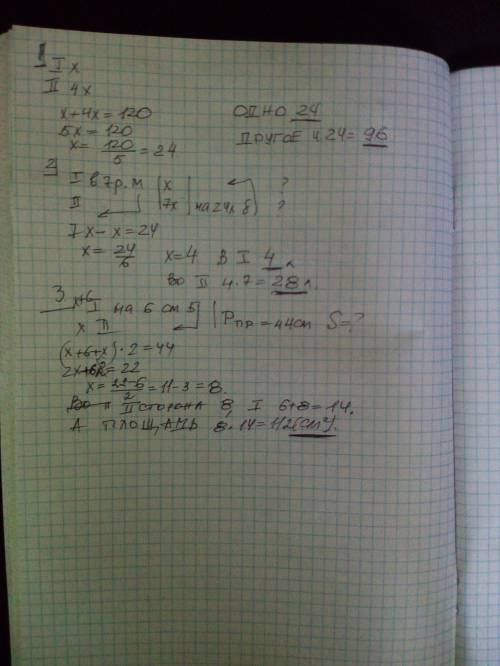 1 I x
II 4x
x+4x=120
5x=120
x= 120/5 =24
ОДНО 24
ДРУГОЕ 4.24= 96
2 I в 7р. м x ?
II 7x на 24л б ?
7x-x=24
x= 24/6 x=4 В I 4 л
ВО II 4.7=28л.
3 x+6 I на 6 см б
x II Pпр=44см S=?
(x+6+x)·2=44
2x+6=22
x= 22-6/2 =11-3=8.
II СТОРОНА 8, I 6+8=14.
А ПЛОЩАДЬ 8·14=112(см²).